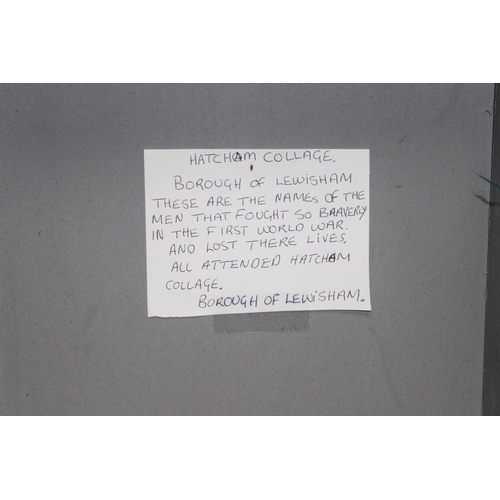 HATCHAM COLLAGE.
BOROUGH OF LEWISHAM
THESE ARE THE NAMES OF THE
MEN THAT FOUGHT SO BRAVERLY
IN THE FIRST WORLD WAR.
AND LOST THERE LIVES.
ALL ATTENDED HATCHAM
COLLAGE.
BOROUGH OF LEWISHAM.